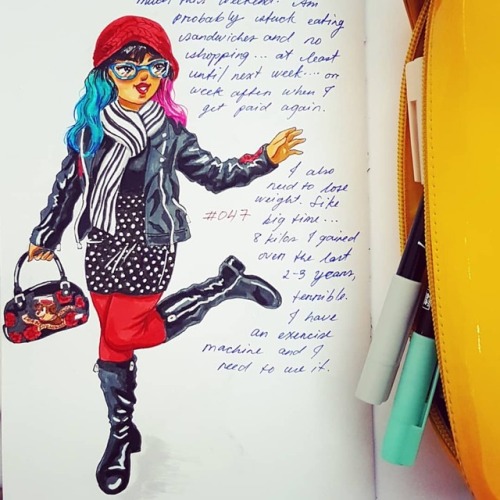 much this weekend. Am
probably stuck eating
sandwiches and no
shopping... at least
until next week... or
week after when I
get paid again.
I also
need to lose
weight. Like
#047
big time...
8 kilos I gained
over the last
2-3 years,
terrible.
I have
an exercise
machine and I
need to use it.